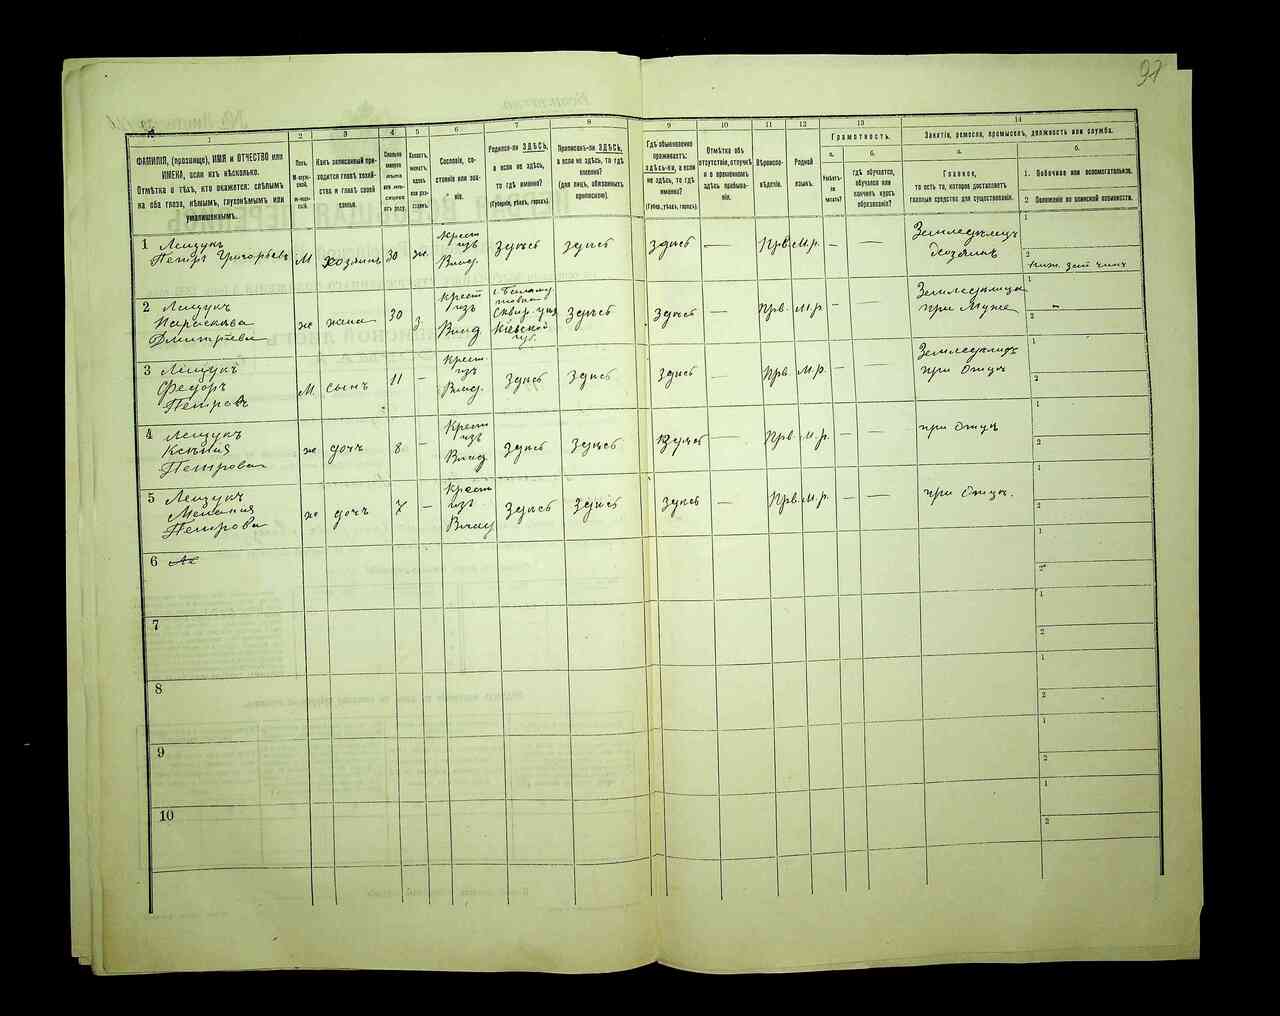 97
1
2
3
4
5
6
7
8
9
10
11
12
13
14
ФАМИЛІЯ, (прозвище), ИМЯ и ОТЧЕСТВО или
ИМЕНА, если ихъ нѣсколько.
Отмѣтка о тѣхъ, кто окажется: слѣпымъ
на оба глаза, нѣмымъ, глухонѣмымъ или
умалишеннымъ.
Полъ.
Какъ записанный при-
ходится главѣ хозяй-
ства и главѣ своей
семьи.
Сословіе, со-
стояніе или зва-
ніе.
Родился-ли ЗДѢСЬ,
а если не здѣсь,
то гдѣ именно?
(Губернія, уѣздъ, городъ).
Приписанъ-ли ЗДѢСЬ,
а если не здѣсь, то гдѣ
именно?
(для лицъ, обязанныхъ
припискою).
Гдѣ обыкновенно
проживаетъ:
здѣсь-ли, а если
не здѣсь, то гдѣ
именно?
(Губер., уѣздъ, городъ).
Отмѣтка объ
отсутствіи, отлучкѣ
и о временномъ
здѣсь пребыва-
ніи.
Вѣроиспо-
вѣданіе.
Родной
языкъ.
Грамотность.
а.
Умѣетъ-
ли
читать?
б.
гдѣ обучается,
обучался или
кончилъ курсъ
образованія?
Занятіе, ремесло, промыселъ, должность или служба.
а.
Главное,
то есть то, которое доставляетъ
главныя средства для существованія.
б.
1. Побочное или вспомогательное.
2 Положеніе по воинской повинности.
1 Лещукъ
Петръ Григорьевъ М хозяинъ 30 ж. Крест из Влад. Здѣсь здѣсь здѣсь — Прв. М.р. — — Земледѣлецъ Хозяинъ
1
2
2 Лещукъ
Параскева
Дмитріева ж жена 30 з Крест из Влад Сквир. уѣз Кіевской губ. Здѣсь здѣсь — Прв. М.р. — — Земледѣлица при Мужѣ
1
2
3 Лещукъ
Федоръ
Петровъ М. сынъ 11 — Крест. из Влад. Здѣсь Здѣсь Здѣсь — Прв. М.р. — — при Отцѣ
1
2
4 Лещукъ
Ксенія
Петрова ж дочь 8 — Крест из Влад. Здѣсь Здѣсь Здѣсь — Прв. М.р. — — при Отцѣ
1
2
5 Лещукъ
Меланія
Петрова ж дочь 7 — Крест из Влад Здѣсь Здѣсь Здѣсь — Прв. М.р. — — при Отцѣ.
1
2
6
1
2
7
1
2
8
1
2
9
1
2
10
1
2